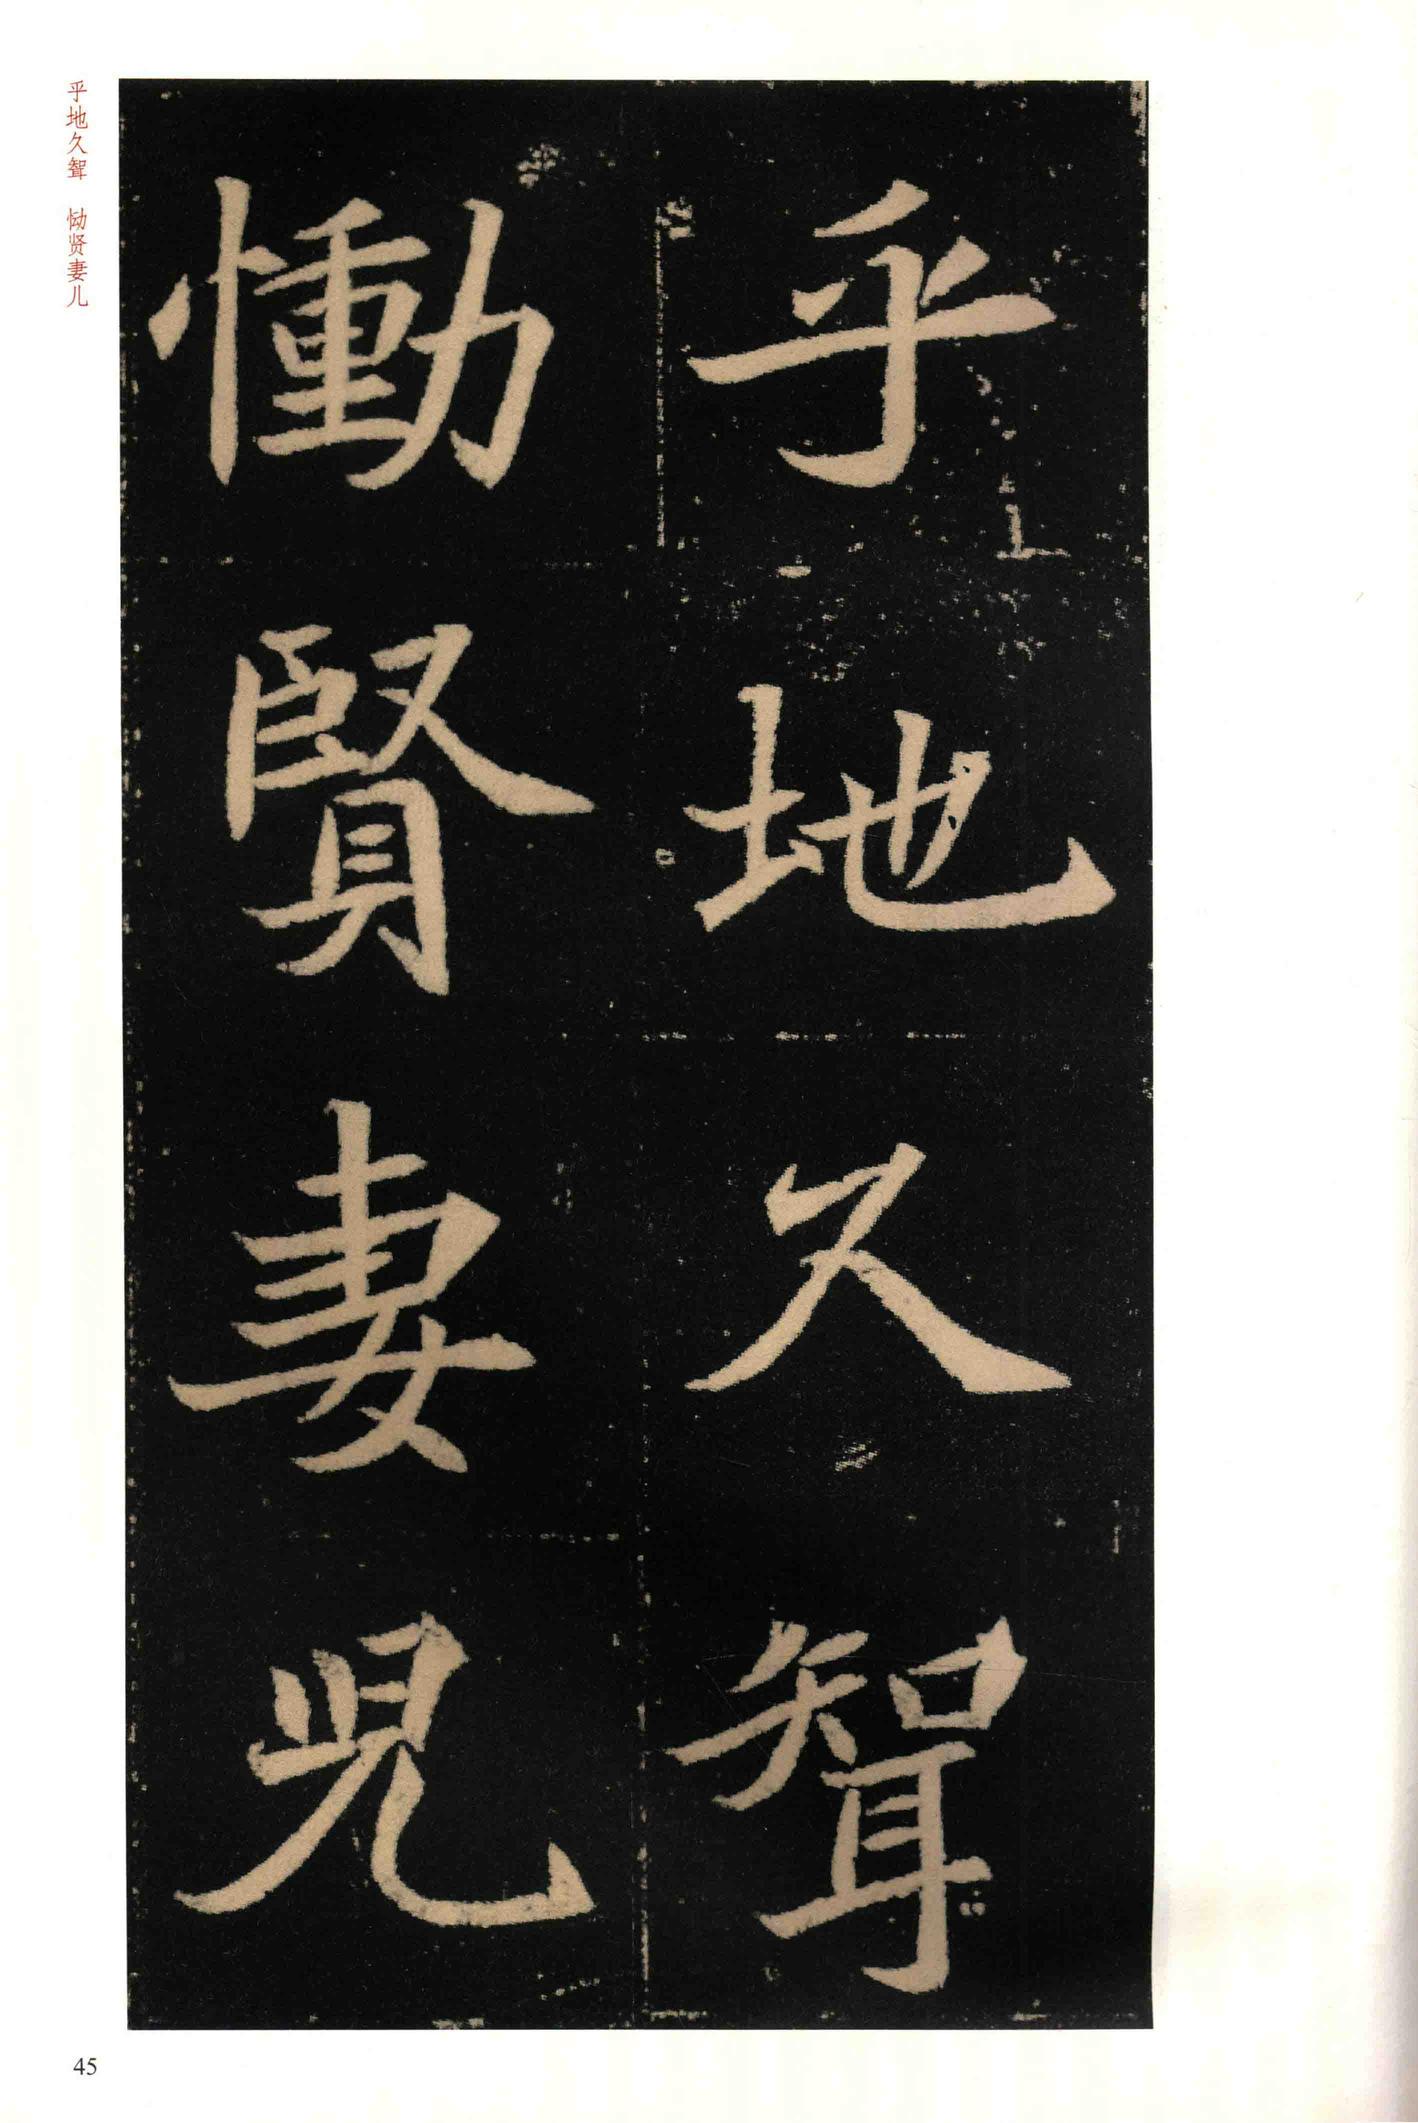 乎地久聟
慟賢妻兒
乎地久聟 恸贤妻儿
45